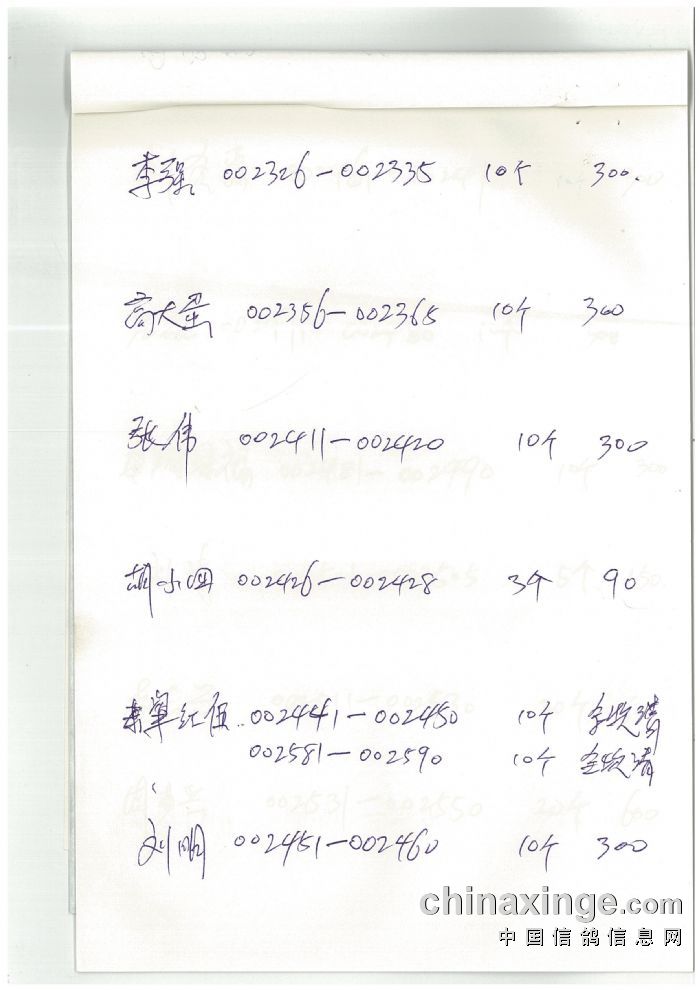 李强 002326—002335 10个 300.
高大蛋 002356—002365 10个 300
张伟 002411—002420 10个 300
胡小四 002426—002428 3个 90
军红伍 002441—002450 10个
002581—002590 10个
刘明 002451—002460 10个 300
chinaxinge.com
中国信鸽信息网